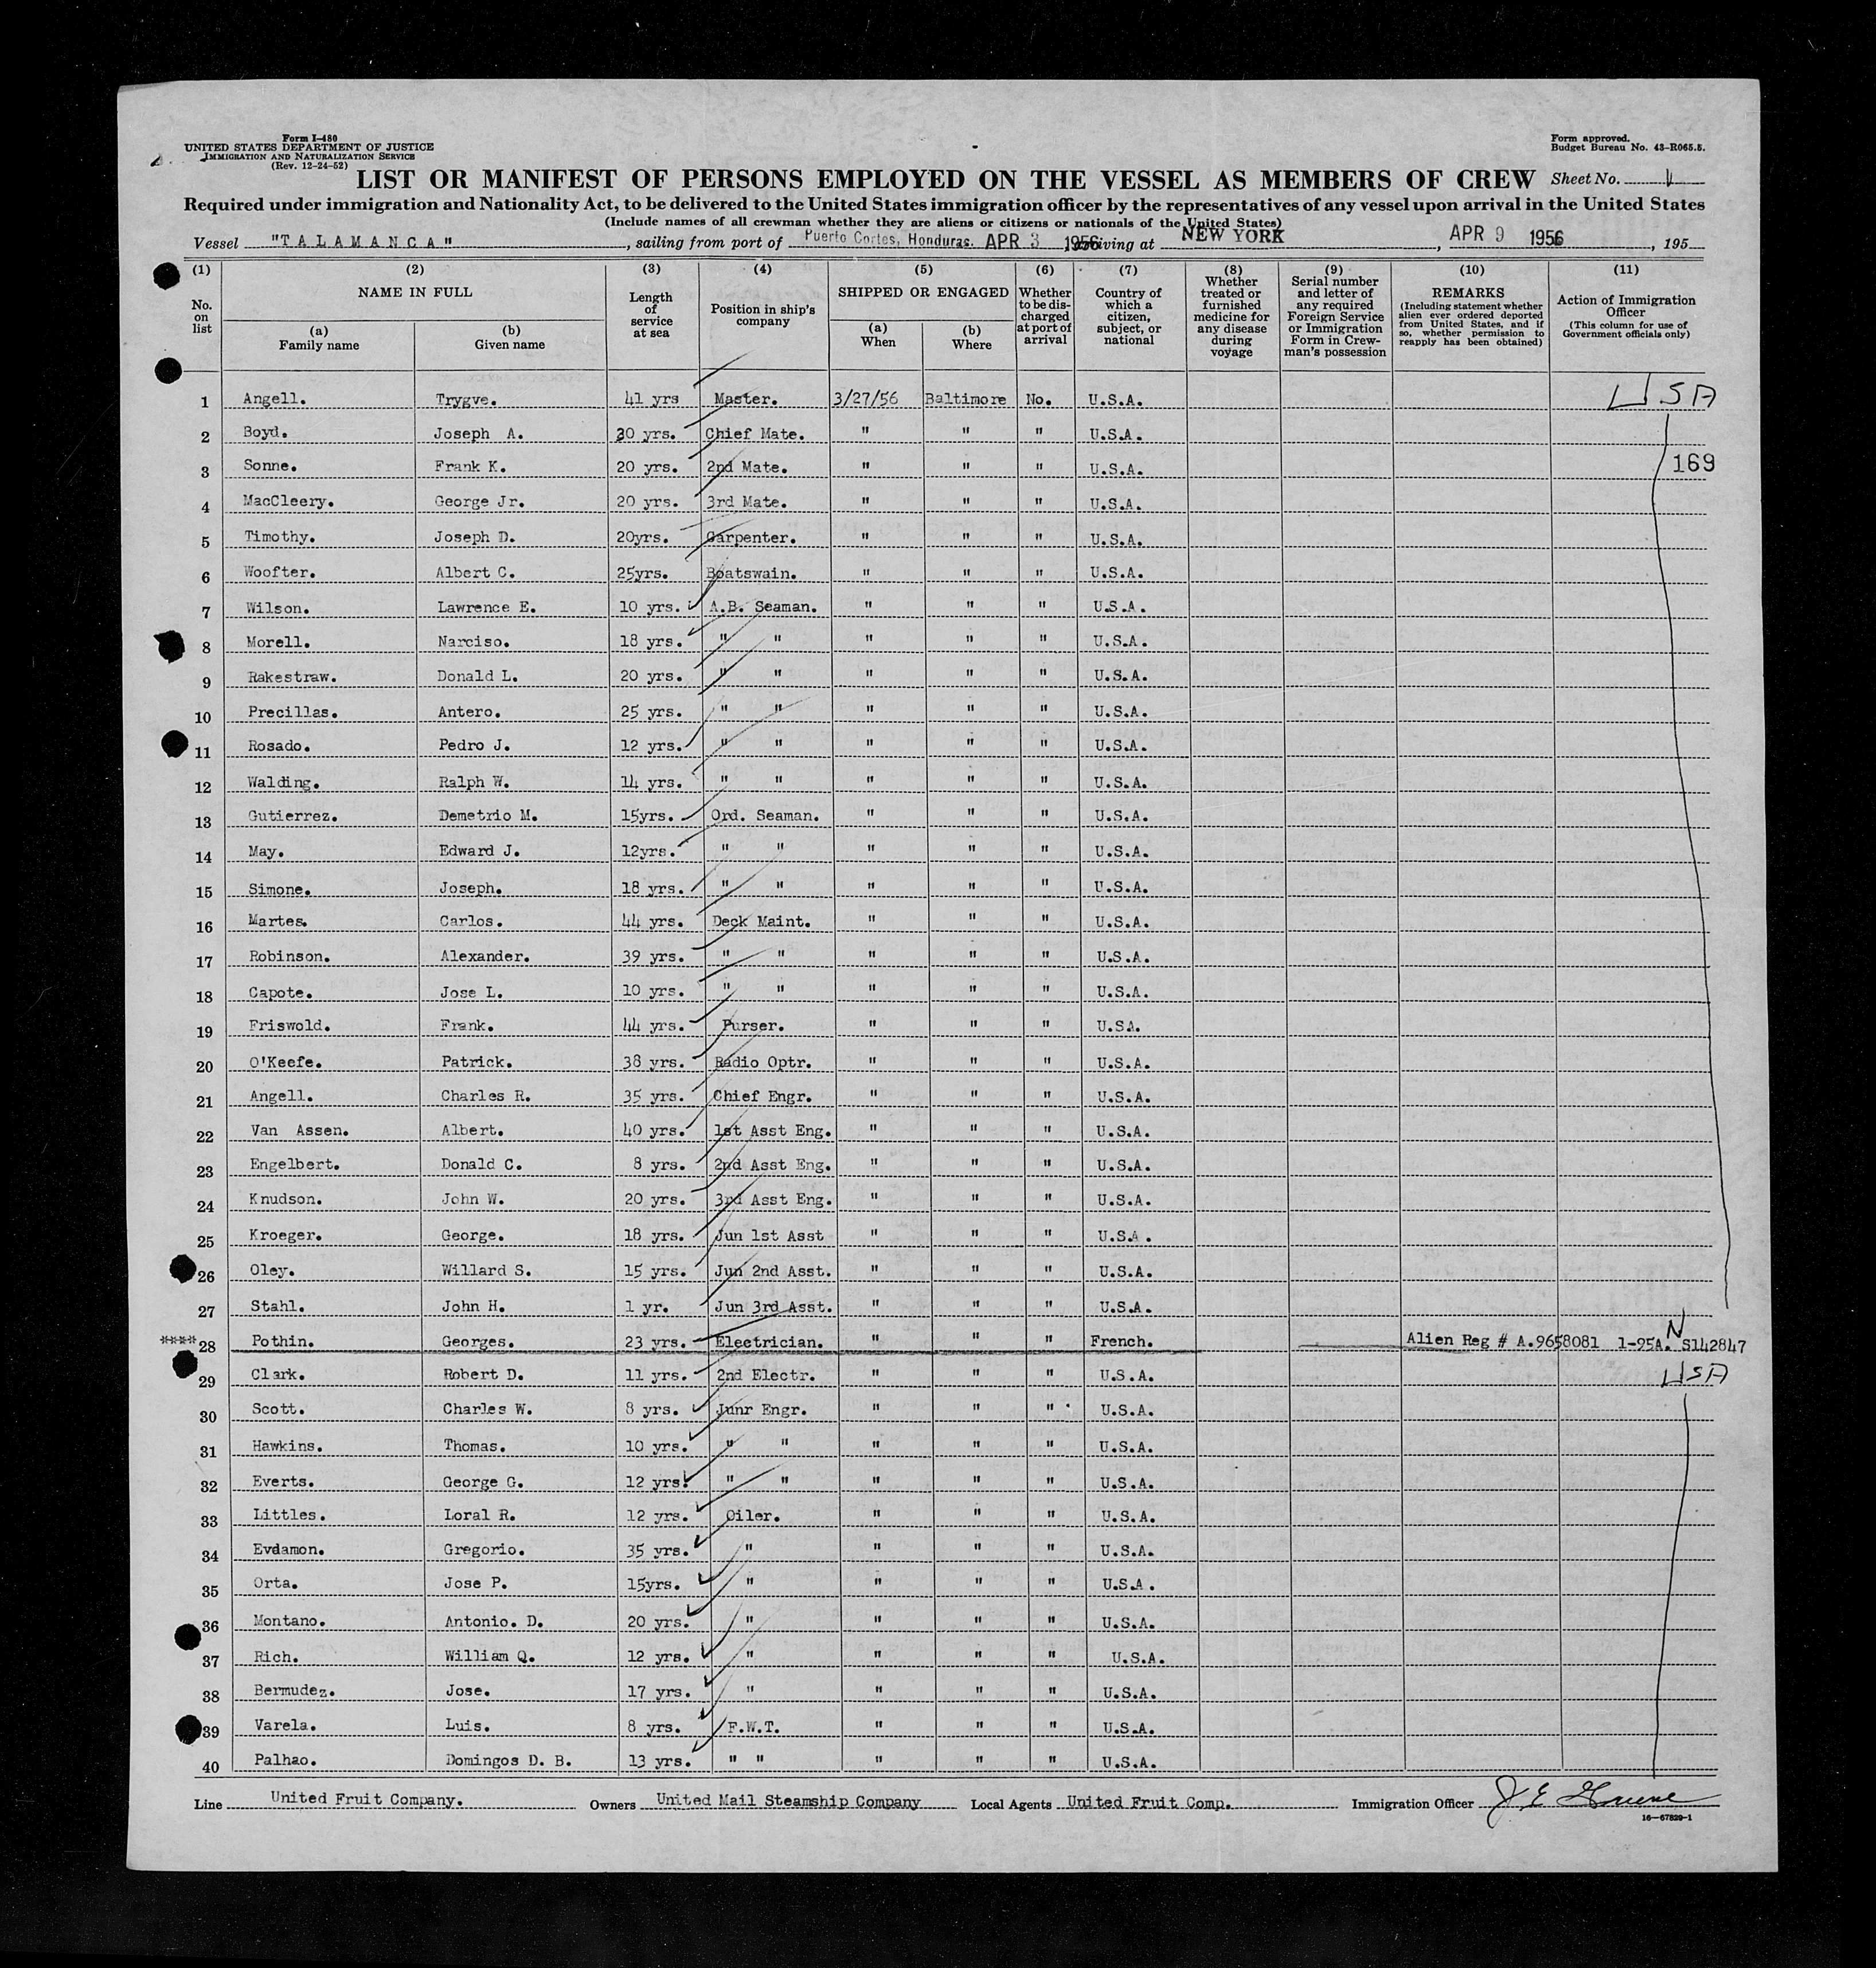 Form I-480
UNITED STATES DEPARTMENT OF JUSTICE
IMMIGRATION AND NATURALIZATION SERVICE
(Rev. 12-24-52)
Form approved.
Budget Bureau No. 43-R065.5.
LIST OR MANIFEST OF PERSONS EMPLOYED ON THE VESSEL AS MEMBERS OF CREW Sheet No.
Required under immigration and Nationality Act, to be delivered to the United States immigration officer by the representatives of any vessel upon arrival in the United States
(Include names of all crewman whether they are aliens or citizens or nationals of the United States)
Vessel "TALAMANCA", sailing from port of Puerto Cortes, Honduras. APR 3 1956, arriving at NEW YORK, APR 9 1956, 195
(1) No. on list
(2) NAME IN FULL
(a) Family name
(b) Given name
(3) Length of service at sea
(4) Position in ship's company
(5) SHIPPED OR ENGAGED
(a) When
(b) Where
(6) Whether to be discharged at port of arrival
(7) Country of which a citizen, subject, or national
(8) Whether treated or furnished medicine for any disease during voyage
(9) Serial number and letter of any required Foreign Service or Immigration Form in Crewman's possession
(10) REMARKS (Including statement whether alien ever ordered deported from United States, and if so, whether permission to reapply has been obtained)
(11) Action of Immigration Officer (This column for use of Government officials only)
1 Angell. Trygve. 41 yrs Master. 3/27/56 Baltimore No. U.S.A. USA
2 Boyd. Joseph A. 30 yrs. Chief Mate. " " " U.S.A.
3 Sonne. Frank K. 20 yrs. 2nd Mate. " " " U.S.A. 169
4 MacCleery. George Jr. 20 yrs. 3rd Mate. " " " U.S.A.
5 Timothy. Joseph D. 20yrs. Carpenter. " " " U.S.A.
6 Woofter. Albert C. 25yrs. Boatswain. " " " U.S.A.
7 Wilson. Lawrence E. 10 yrs. A.B. Seaman. " " " U.S.A.
8 Morell. Narciso. 18 yrs. " " " " " U.S.A.
9 Rakestraw. Donald L. 20 yrs. " " " " " U.S.A.
10 Precillas. Antero. 25 yrs. " " " " " U.S.A.
11 Rosado. Pedro J. 12 yrs. " " " " " U.S.A.
12 Walding. Ralph W. 14 yrs. " " " " " U.S.A.
13 Gutierrez. Demetrio M. 15yrs. Ord. Seaman. " " " U.S.A.
14 May. Edward J. 12yrs. " " " " " U.S.A.
15 Simone. Joseph. 18 yrs. " " " " " U.S.A.
16 Martes. Carlos. 44 yrs. Deck Maint. " " " U.S.A.
17 Robinson. Alexander. 39 yrs. " " " " " U.S.A.
18 Capote. Jose L. 10 yrs. " " " " " U.S.A.
19 Friswold. Frank. 44 yrs. Purser. " " " U.SA.
20 O'Keefe. Patrick. 38 yrs. Radio Optr. " " " U.S.A.
21 Angell. Charles R. 35 yrs. Chief Engr. " " " U.S.A.
22 Van Assen. Albert. 40 yrs. 1st Asst Eng. " " " U.S.A.
23 Engelbert. Donald C. 8 yrs. 2nd Asst Eng. " " " U.S.A.
24 Knudson. John W. 20 yrs. 3rd Asst Eng. " " " U.S.A.
25 Kroeger. George. 18 yrs. Jun 1st Asst " " " U.S.A.
26 Oley. Willard S. 15 yrs. Jun 2nd Asst. " " " U.S.A.
27 Stahl. John H. 1 yr. Jun 3rd Asst. " " " U.S.A.
**** 28 Pothin. Georges. 23 yrs. Electrician. " " " French. Alien Reg # A.9658081 1-95A. N S142847
29 Clark. Robert D. 11 yrs. 2nd Electr. " " " U.S.A. USA
30 Scott. Charles W. 8 yrs. Junr Engr. " " " U.S.A.
31 Hawkins. Thomas. 10 yrs. " " " " " U.S.A.
32 Everts. George G. 12 yrs. " " " " " U.S.A.
33 Littles. Loral R. 12 yrs. Oiler. " " " U.S.A.
34 Evdamon. Gregorio. 35 yrs. " " " " U.S.A.
35 Orta. Jose P. 15yrs. " " " " U.S.A.
36 Montano. Antonio. D. 20 yrs. " " " " U.S.A.
37 Rich. William Q. 12 yrs. " " " " U.S.A.
38 Bermudez. Jose. 17 yrs. " " " " U.S.A.
39 Varela. Luis. 8 yrs. F.W.T. " " " U.S.A.
40 Palhao. Domingos D. B. 13 yrs. " " " " " U.S.A.
Line United Fruit Company. Owners United Mail Steamship Company Local Agents United Fruit Comp. Immigration Officer J E Greene
16-67829-1